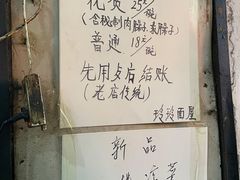 花贡 25元/碗
(含秘制肉臊子.素臊子)
普通 18元/碗
先用后结账
(老店传统)
玲玲面屋
新品
凉菜